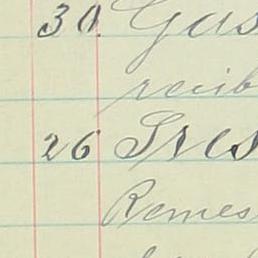 30. Gas
recib
26 Sres
Remes